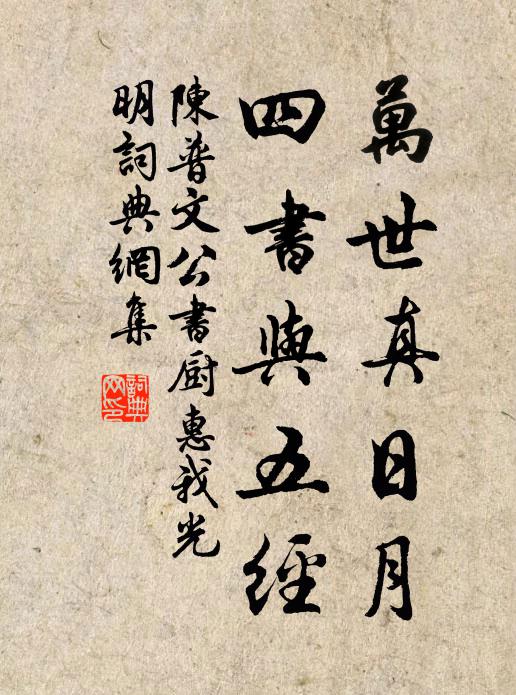 萬世真日月
四書與五經
陳普文公書厨惠我光
明詞典網集
詞典網印